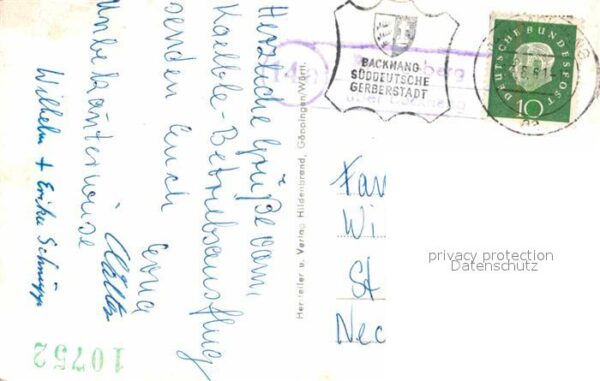 Herzliche Grüße vom
Kaelble-Betriebsausflug
senden Euch Erna
Unbekannterweise
Wilhelm + Erika
Hersteller u. Verlag Hildenbrand, Göppingen/Württ.
10752
14a
BACKNANG
SÜDDEUTSCHE
GERBERSTADT
über Backnang
DEUTSCHE BUNDESPOST
10
Fam
Wi
St
Nec
privacy protection
Datenschutz